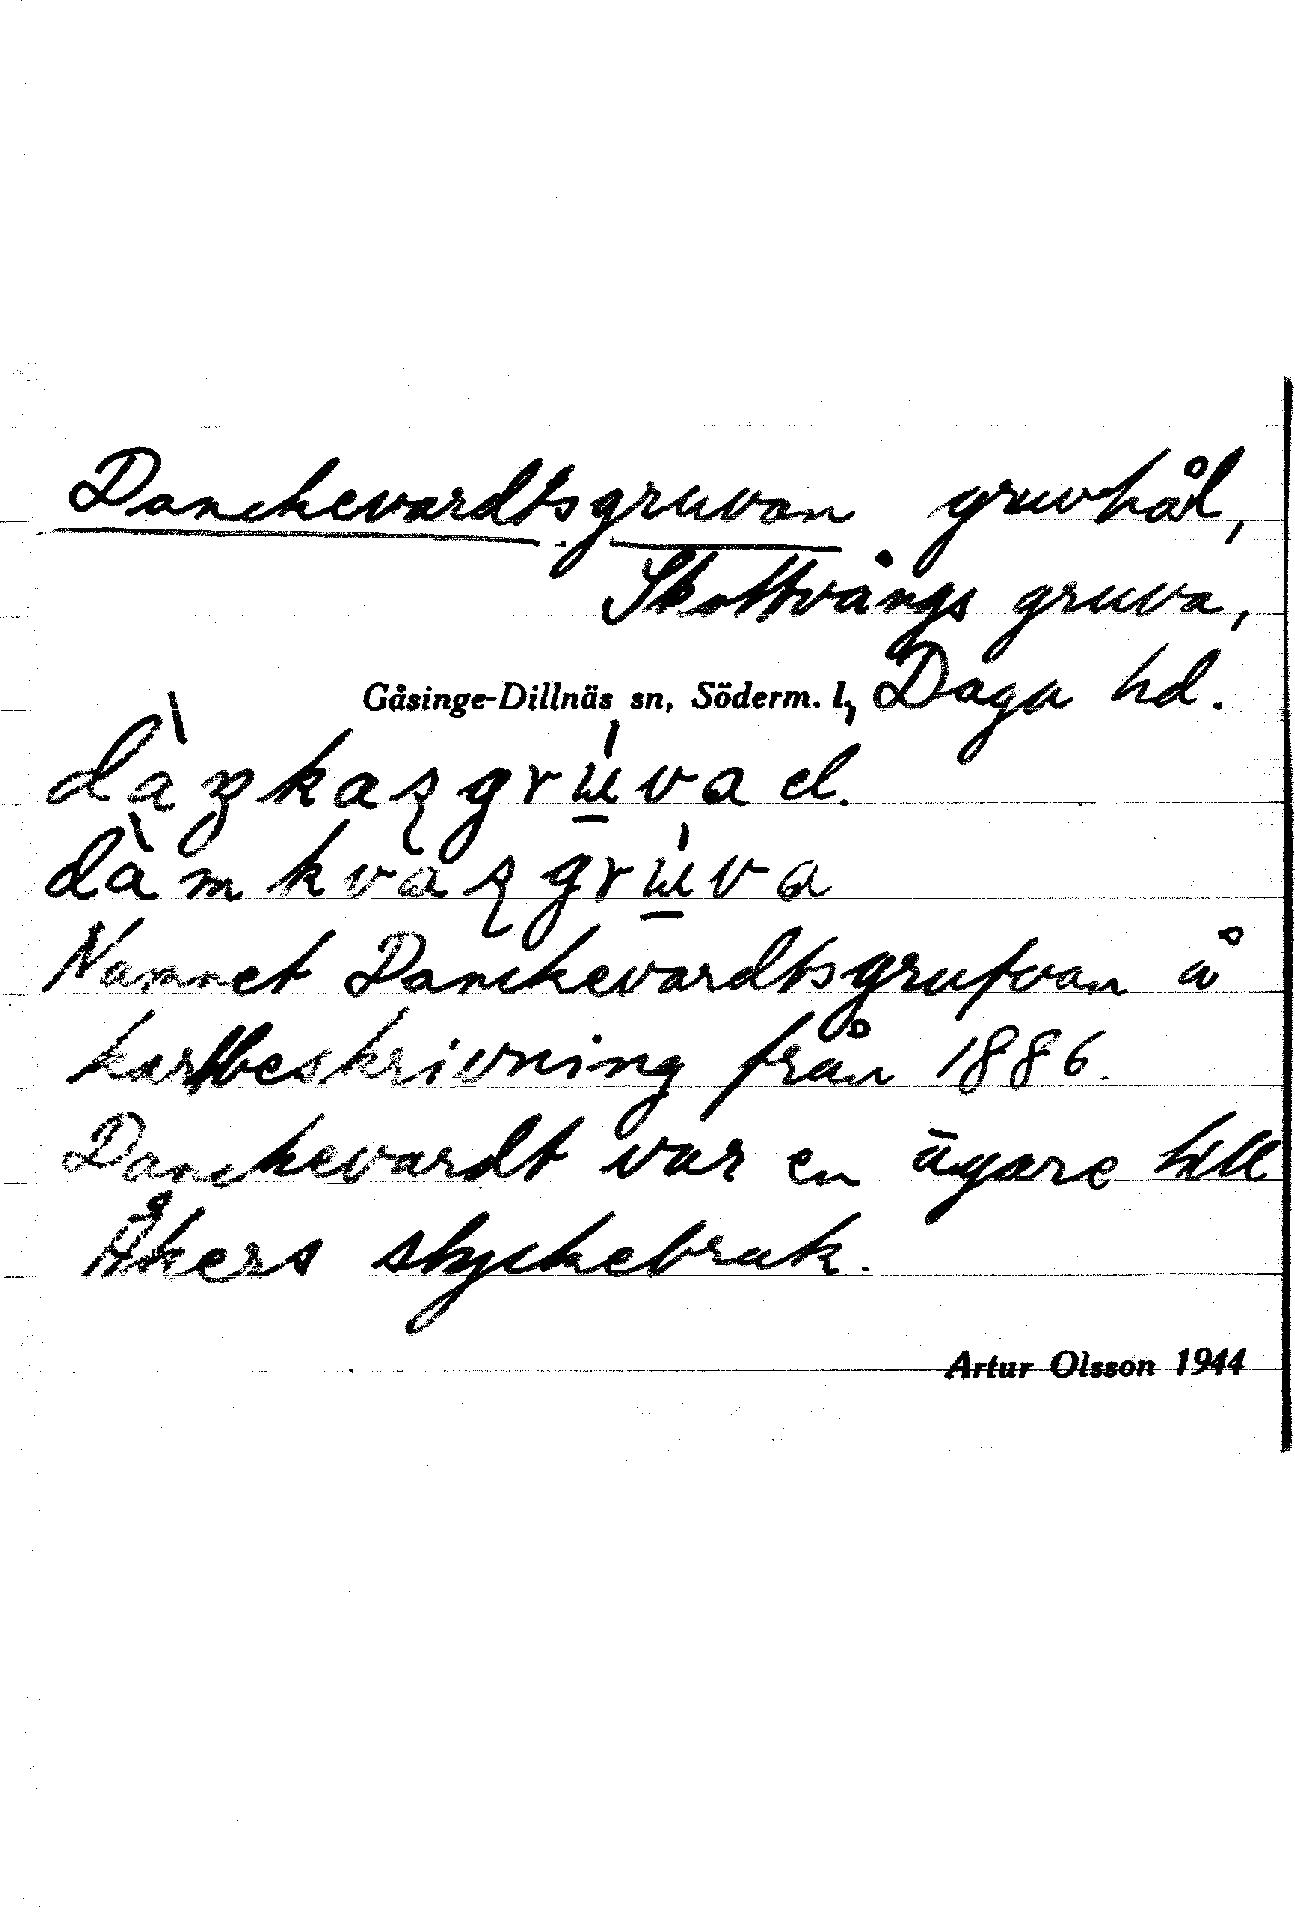 Danckevardtsgruvan gruvhål,
Skottvångs gruva,
Gåsinge-Dillnäs sn, Söderm. l., Daga hd.
dàŋkaʂgrùva el.
dàmkvaʂgrùva
Namnet Danckevardtsgrufvan å
kartbeskrivning från 1886.
Danckevardt var en ägare till
Åkers styckebruk.
Artur Olsson 1944